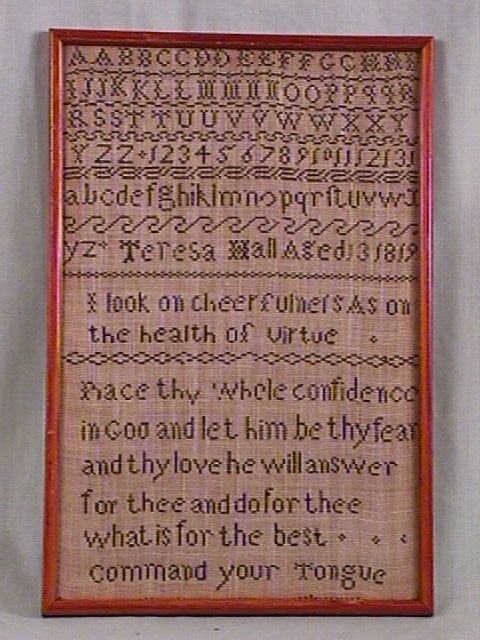 AABBCCDDEEFFGGHHI
IJJKKLLMMNNOOPPQQR
RSSTTUUVVWWXXY
YZZ 123456789101112131
abcdefghiklmnopqrſtuvwx
yz Teresa Hall Aged 13 1819
I look on cheerfulneſs As on
the health of Virtue
Place thy Whole confidence
in God and let him be thy fear
and thy love he will answer
for thee and do for thee
what is for the best
Command your Tongue